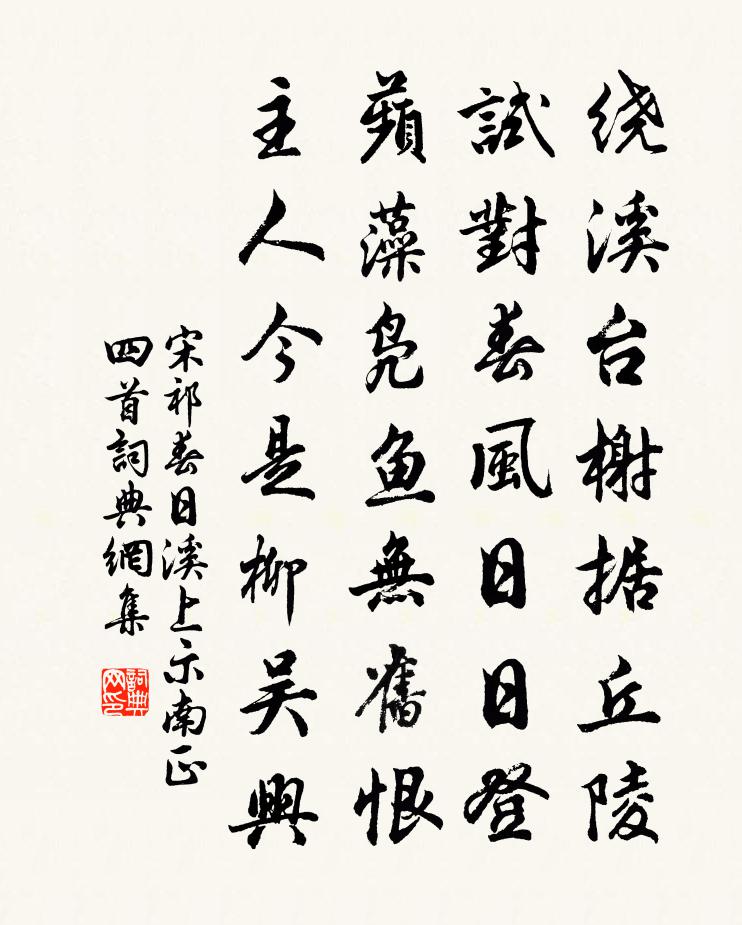 绕溪台榭据丘陵
試對春風日日登
蘋藻凫鱼無舊恨
主人今是柳吴興
宋祁春日溪上示南正
四首詞典網集
詞典网印